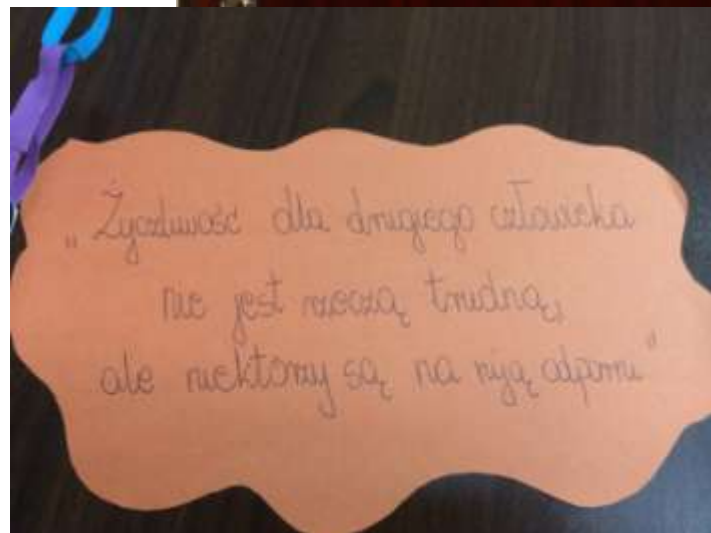 „Życzliwość dla drugiego człowieka
nie jest rzeczą trudną,
ale niektórzy są na nią odporni"